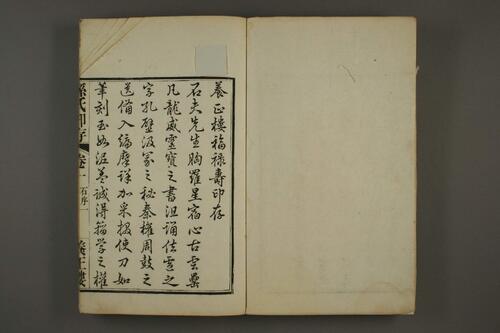 養正樓福祿壽印存
石夫先生胸羅星宿心古雲
凡龍威靈寶之書沮誦佉盧之
字孔壁汲冢之秘秦權周鼓之
送備入编摩詳加采掇使刀如
筆刻玉如泥蓋誠得籀學之權
氏印存 卷一 石序 一 養正樓